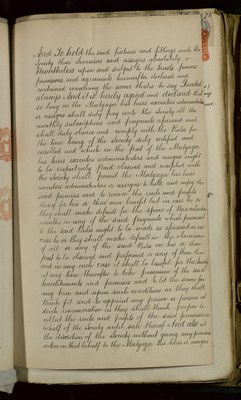 And To hold the said fixtures and fittings unto the
Society their Successors and assigns absolutely
Nevertheless upon and subject to the trusts powers
provisions and agreements hereinafter declared and
contained concerning the same that is to say Provided
always And it is hereby agreed and declared that if and
so long as the Mortgagor his heirs executors administrators
or assigns shall duly pay unto the Society all the
monthly subscriptions and payments aforesaid and
shall duly observe and comply with the Rules for
the time being of the Society duly certified and
which on the part of the Mortgagor
his heirs executors administrators and assigns ought
to be respectively paid observed and complied with
the Society shall permit the Mortgagor his heirs
executors administrators or assigns to hold and enjoy the
said premises and to receive the rents and profits
thereof for his or their own benefit but in case he or
they shall make default for the space of three calendar
months in any of the said payments which pursuant
to the said Rules ought to be made as aforesaid or in
case he or they shall make default in the observance
of all or any of the said Rules on his or their
part to be observed and performed or any of them then
and in any such case it shall be lawful for the Society
at any time thereafter to take possession of the said
hereditaments and premises and to let the same for
any term and upon such conditions as they shall
think fit and to appoint any person or persons at
such remuneration as they shall think proper to
collect the rents and profits of the said premises on
behalf of the Society until sale thereof And also at
the discretion of the Society without giving any previous
notice in that behalf to the Mortgagor his heirs or assigns